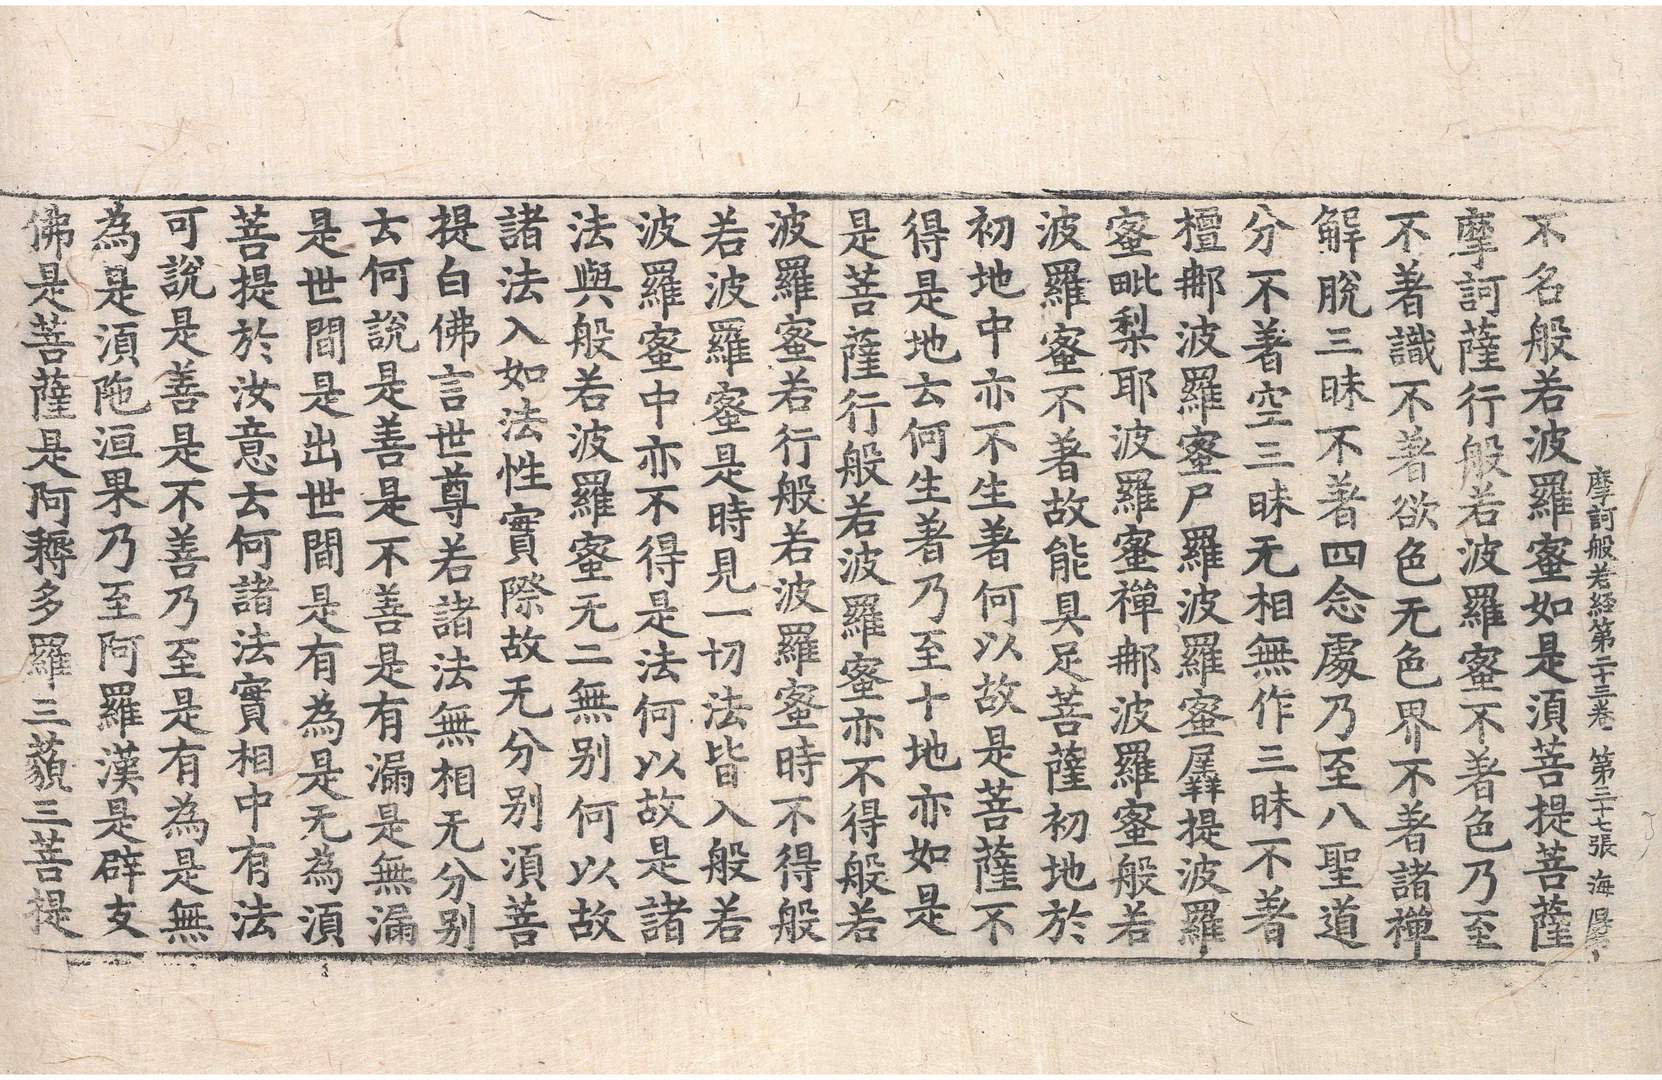 摩訶般若經第二十三卷　第三十七張　海
不名般若波羅蜜如是湏菩提菩薩
摩訶薩行般若波羅蜜不著色乃至
不著識不著欲色无色界不著諸禪
解脫三昧不著四念處乃至八聖道
分不著空三昧无相無作三昧不著
檀那波羅蜜尸羅波羅蜜羼提波羅
蜜毗梨耶波羅蜜禪那波羅蜜般若
波羅蜜不著故能具足菩薩初地於
初地中亦不生著何以故是菩薩不
得是地云何生著乃至十地亦如是
是菩薩行般若波羅蜜亦不得般若
波羅蜜若行般若波羅蜜時不得般
若波羅蜜是時見一切法皆入般若
波羅蜜中亦不得是法何以故是諸
法與般若波羅蜜无二無別何以故
諸法入如法性實際故无分別湏菩
提白佛言世尊若諸法無相无分別
云何說是善是不善是有漏是無漏
是世間是出世間是有為是无為湏
菩提於汝意云何諸法實相中有法
可說是善是不善乃至是有為是無
為是湏陁洹果乃至阿羅漢是辟支
佛是菩薩是阿耨多羅三藐三菩提